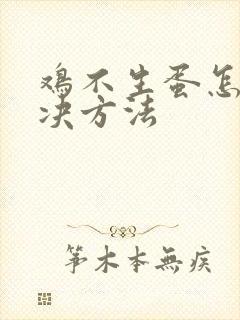 鸡不生蛋怎
决方法
筝木本無疾